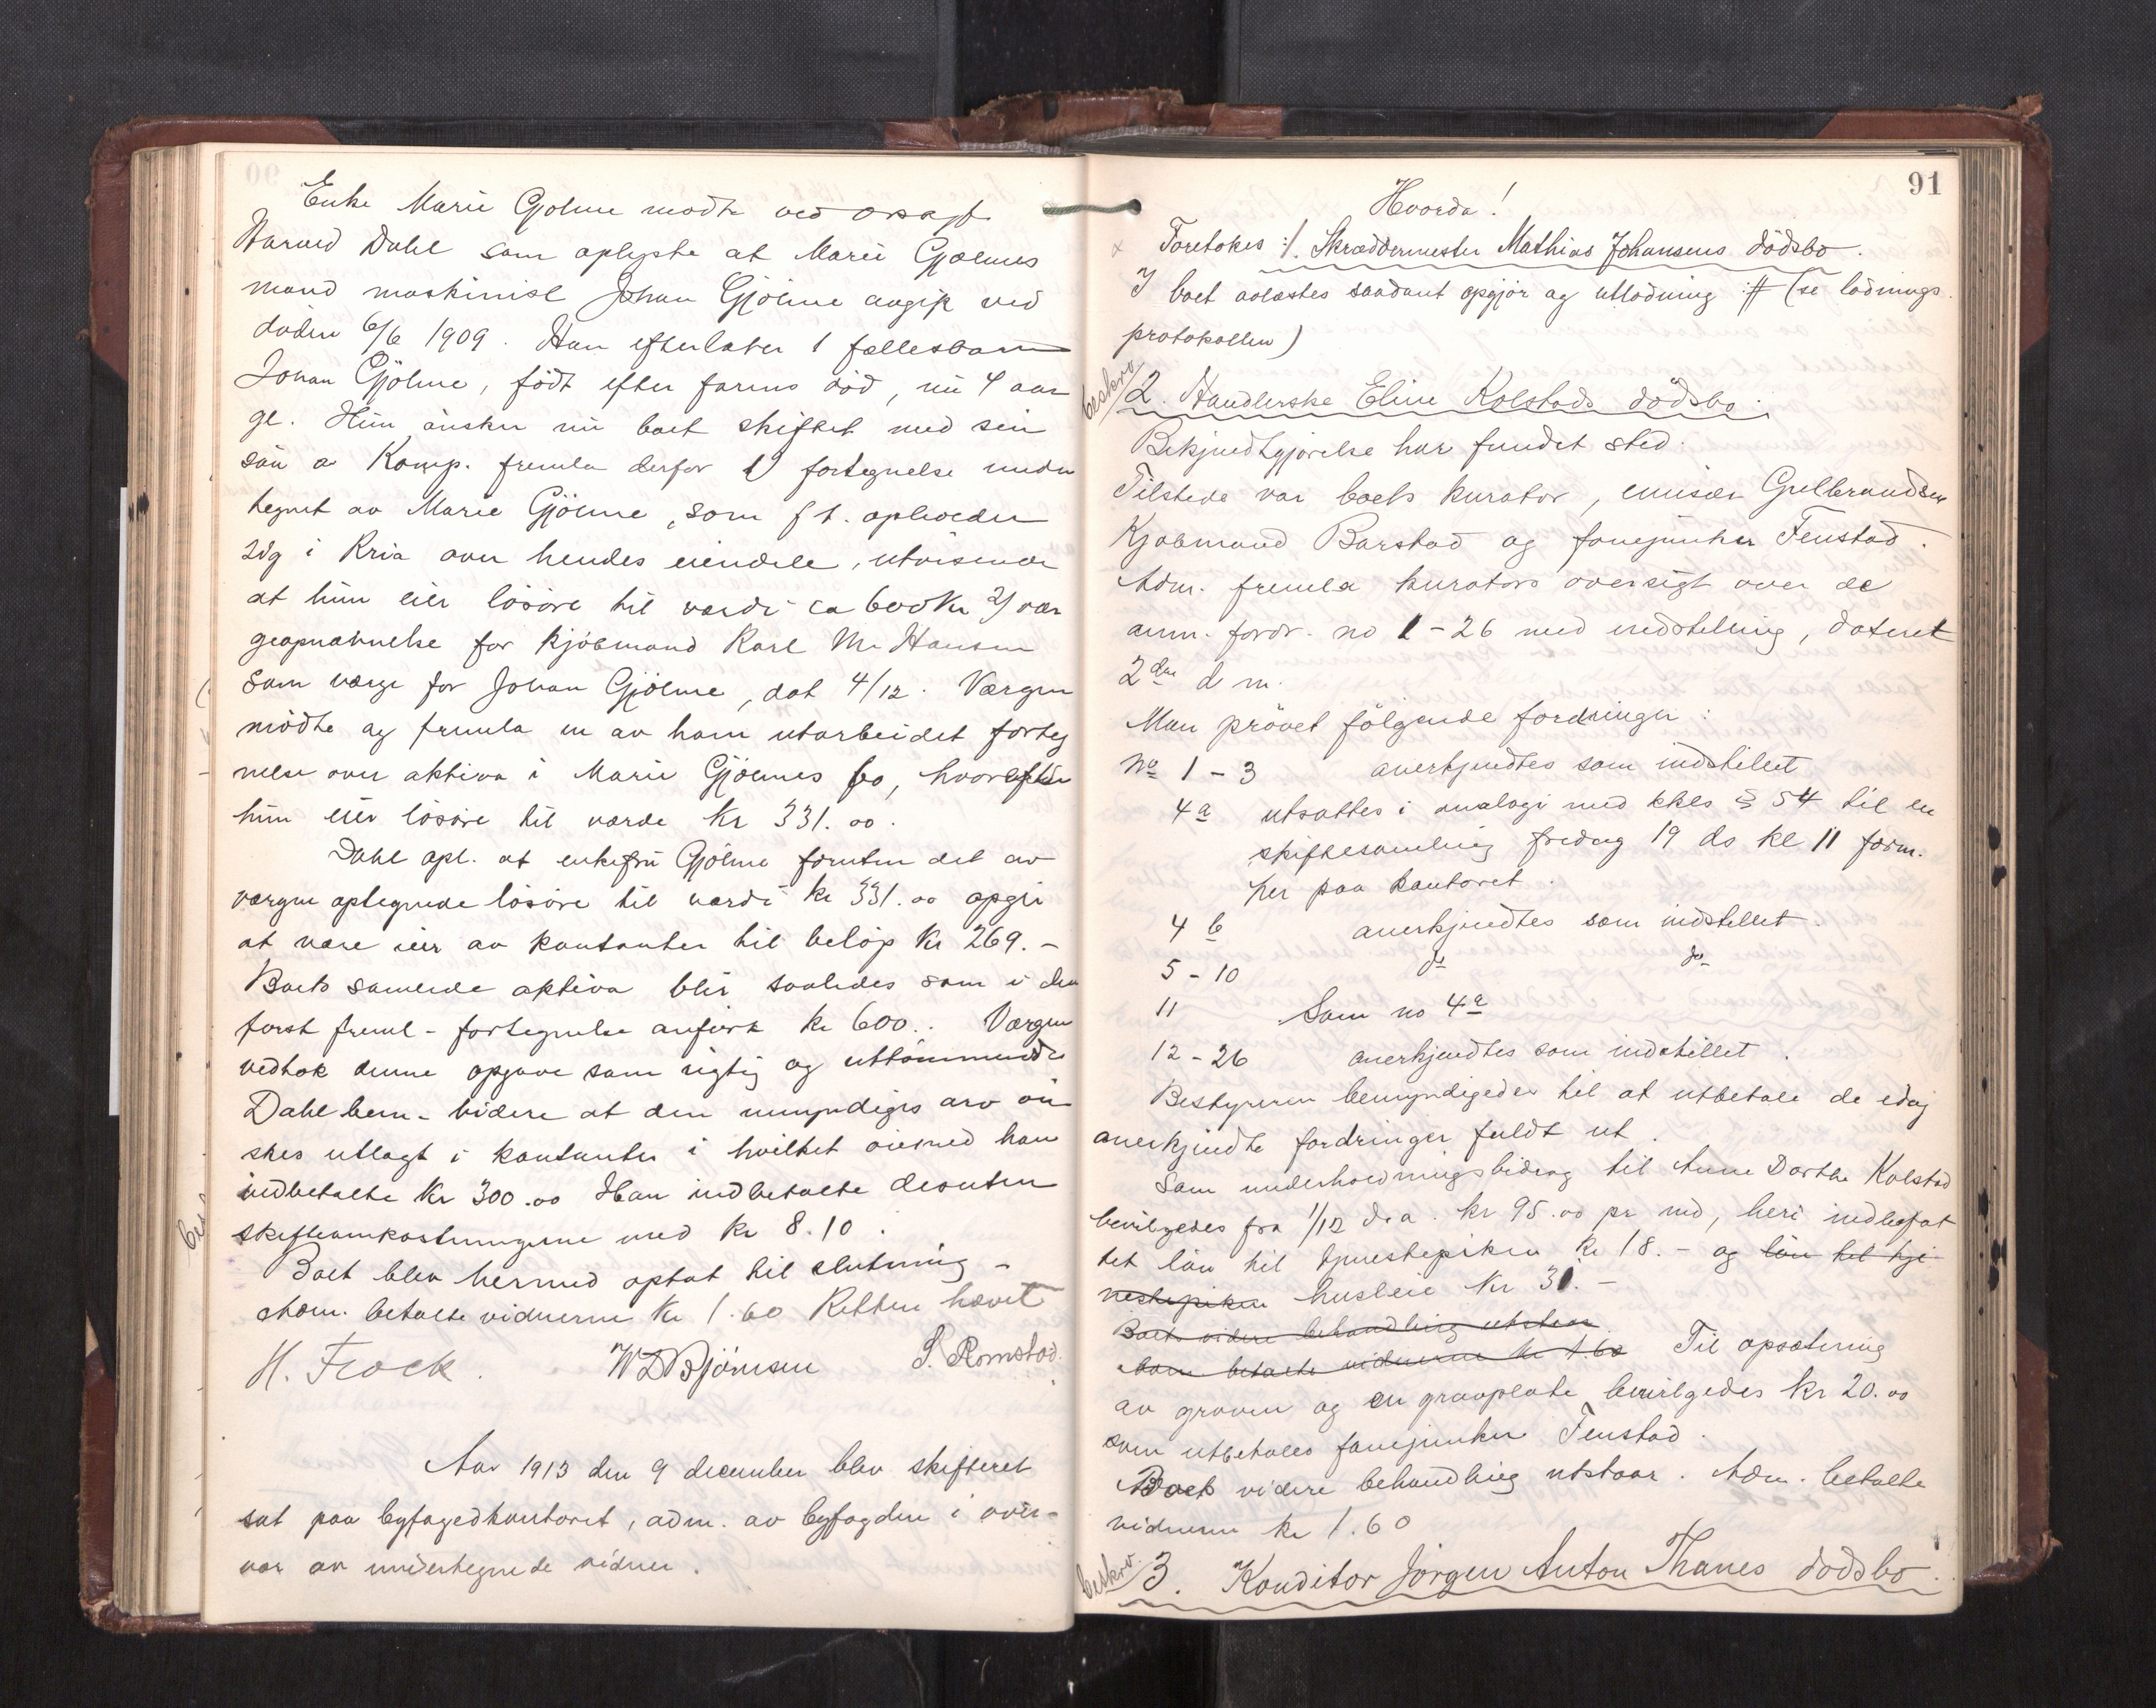 Enke Marie Gjølme mødte ved orsagf.
Harald Dahl som oplyste at Marie Gjølmes
mand maskinist Johan Gjölme avgik ved
døden 6/6 1909. Han efterlater 1 fællesbarn
Johan Gjölme, født efter farens död, nu 4 aar
gl. Hun önsker nu boet skiftet med sin
sön o Komp. fremla derfor 1) fortegnelse under
tegnet av Marie Gjölme, som f t. opholder
sig i Kria over hendes eiendele, utvisende
at hun eier lösöre til værdi ca 600 Kr 2) vær
geopnævnelse for kjöbmand Karl M. Hansen
som værge for Johan Gjölme, dat 4/12. Værgen
mödte og fremla en av ham utarbeidet forteg
nelse over aktiva i Marie Gjölmes bo, hvorefter
hun eier lösöre til værde Kr 331.00.
Dahl opl. at enkefru Gjölme foruten det av
værgen optegnede lösöre til værdi kr 331.00 opgir
at være eier av kontanter til belöp Kr 269.-
Boets samlede aktiva blir saaledes som i den
först freml- fortegnelse anført kr 600.. Værgen
vedtok denne opgave som rigtig og uttömmende
Dahl bem- videre at den umyndiges arv ön
skes utlagt i kontanter i hvilket öiemed han
indbetalte Kr 300.00 Han indbetalte desuten
skifteomkostningerne med kr 8.10.
Boet blev hermed optat til slutning -
Adm. betalte vidnerne Kr 1.60 Retten hævet
H. Frock. W D Björnsen S. Romstad.
Aar 1913 den 9 december blev skifteret
sat paa byfogedkontoret, adm. av byfogden i over-
vær av undertegnede vidner.
91
Hvorda!
Foretokes :/. Skræddermester Mathias Johansens dödsbo.
I boet avlæstes saadant opgjør og utlodning # (se lodnings
protokollen)
beskrev 2. Handlerske Eline Kolstads dödsbo.
Bekjendtgjørelse har fundet sted.
Tilstede var boets kurator, emisær Gulbrandsen
Kjøbmand Barstad og fanejunker Fenstad.
Adm. fremla kurators oversigt over de
anm. fordr. no 1-26 med indstilling, dateret
2den d m.
Man prövet fölgende fordringer:
No 1-3 anerkjendtes som indstillet
4a utsattes i analogi med kkls § 54 til en
skiftesamling fredag 19 ds kl 11 form.
her paa kontoret.
4 b anerkjendtes som indstillet.
5-10 do do
11 Som no 4a
12-26 anerkjendtes som indstillet.
Bestyreren bemyndigedes til at utbetale de idag
anerkjendte fordringer fuldt ut.
Som underholdningsbidrag til Anne Dorthe Kolstad
bevilgedes fra 1/12 d.a. kr 95.00 pr md, heri indbefat
tet lön til tjenestepiken kr 18.- og lön til tje
nestepiken husleie Kr 31.-
Boets videre behandling utstaar.
Adm betalte vidnerne kr 1.60 Til opsætning
av graven og en gravplate bevilgedes kr 20.00
som utbetales fanejunker Fenstad.
Boets videre behandling utstaar. Adm. betalte
vidnerne kr 1.60
beskrev. 3. Konditor Jörgen Anton Thanes dødsbo.